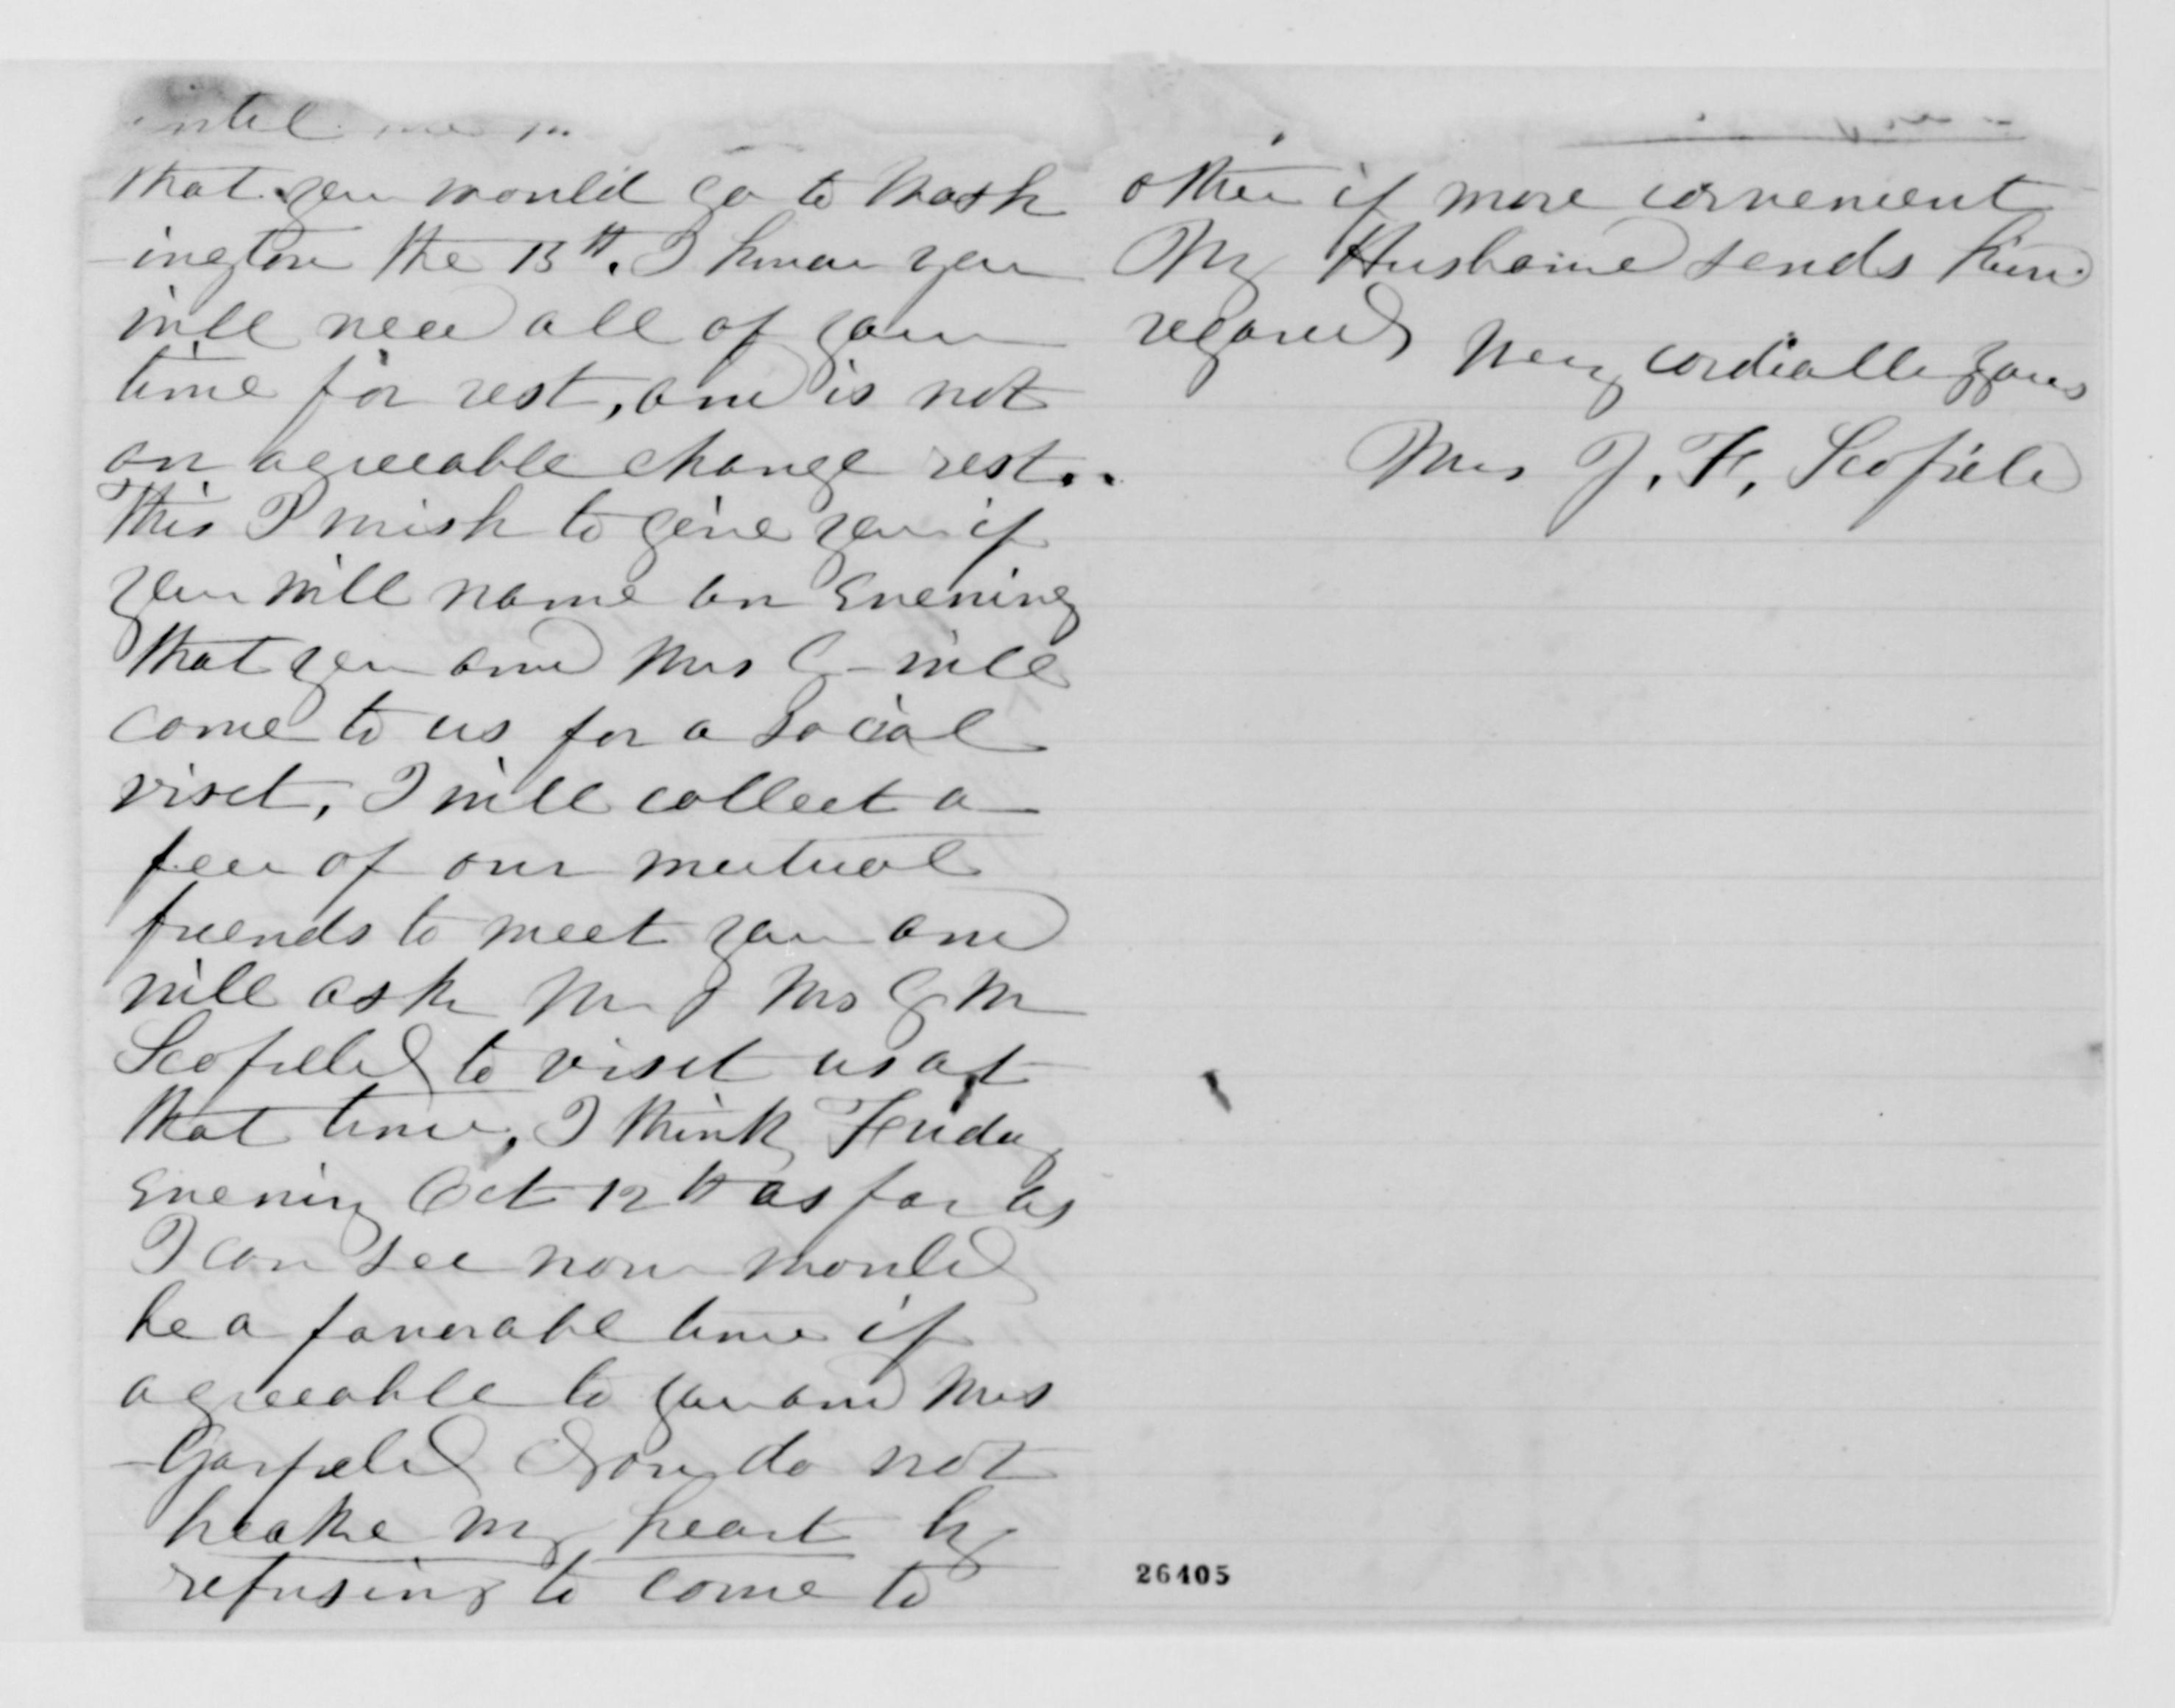 until
that you would go to Wash
-ington the 13th. I know you
will need all of your
time for rest, and is not
an agreeable change rest..
This I wish to give you if
you will name an Evening
that you and Mrs G- will
come to us for a Social
viset, I will collect a
few of our mutual
friends to meet you and
will ask Mr & Mrs G M
Scofield to viset us at
that time, I think Friday
Evening Oct 12th as far as
I can see now would
be a favorable time if
agreeable to you and Mrs
Garfield do not
breake my heart by
refusing to come to
other if more convenient
My Husband sends kind
regards Very cordially yours
Mrs J. F. Scofield
26405